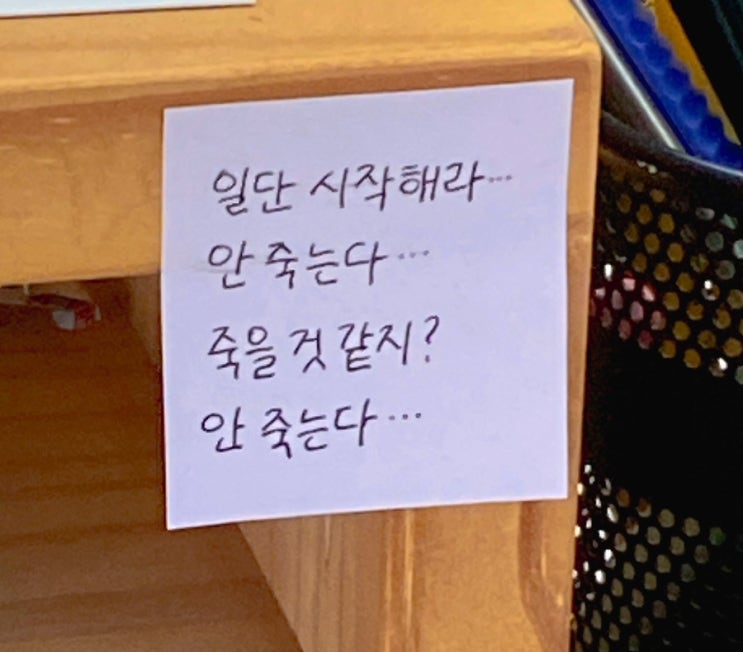 일단 시작해라...
안 죽는다...
죽을 것 같지?
안 죽는다...